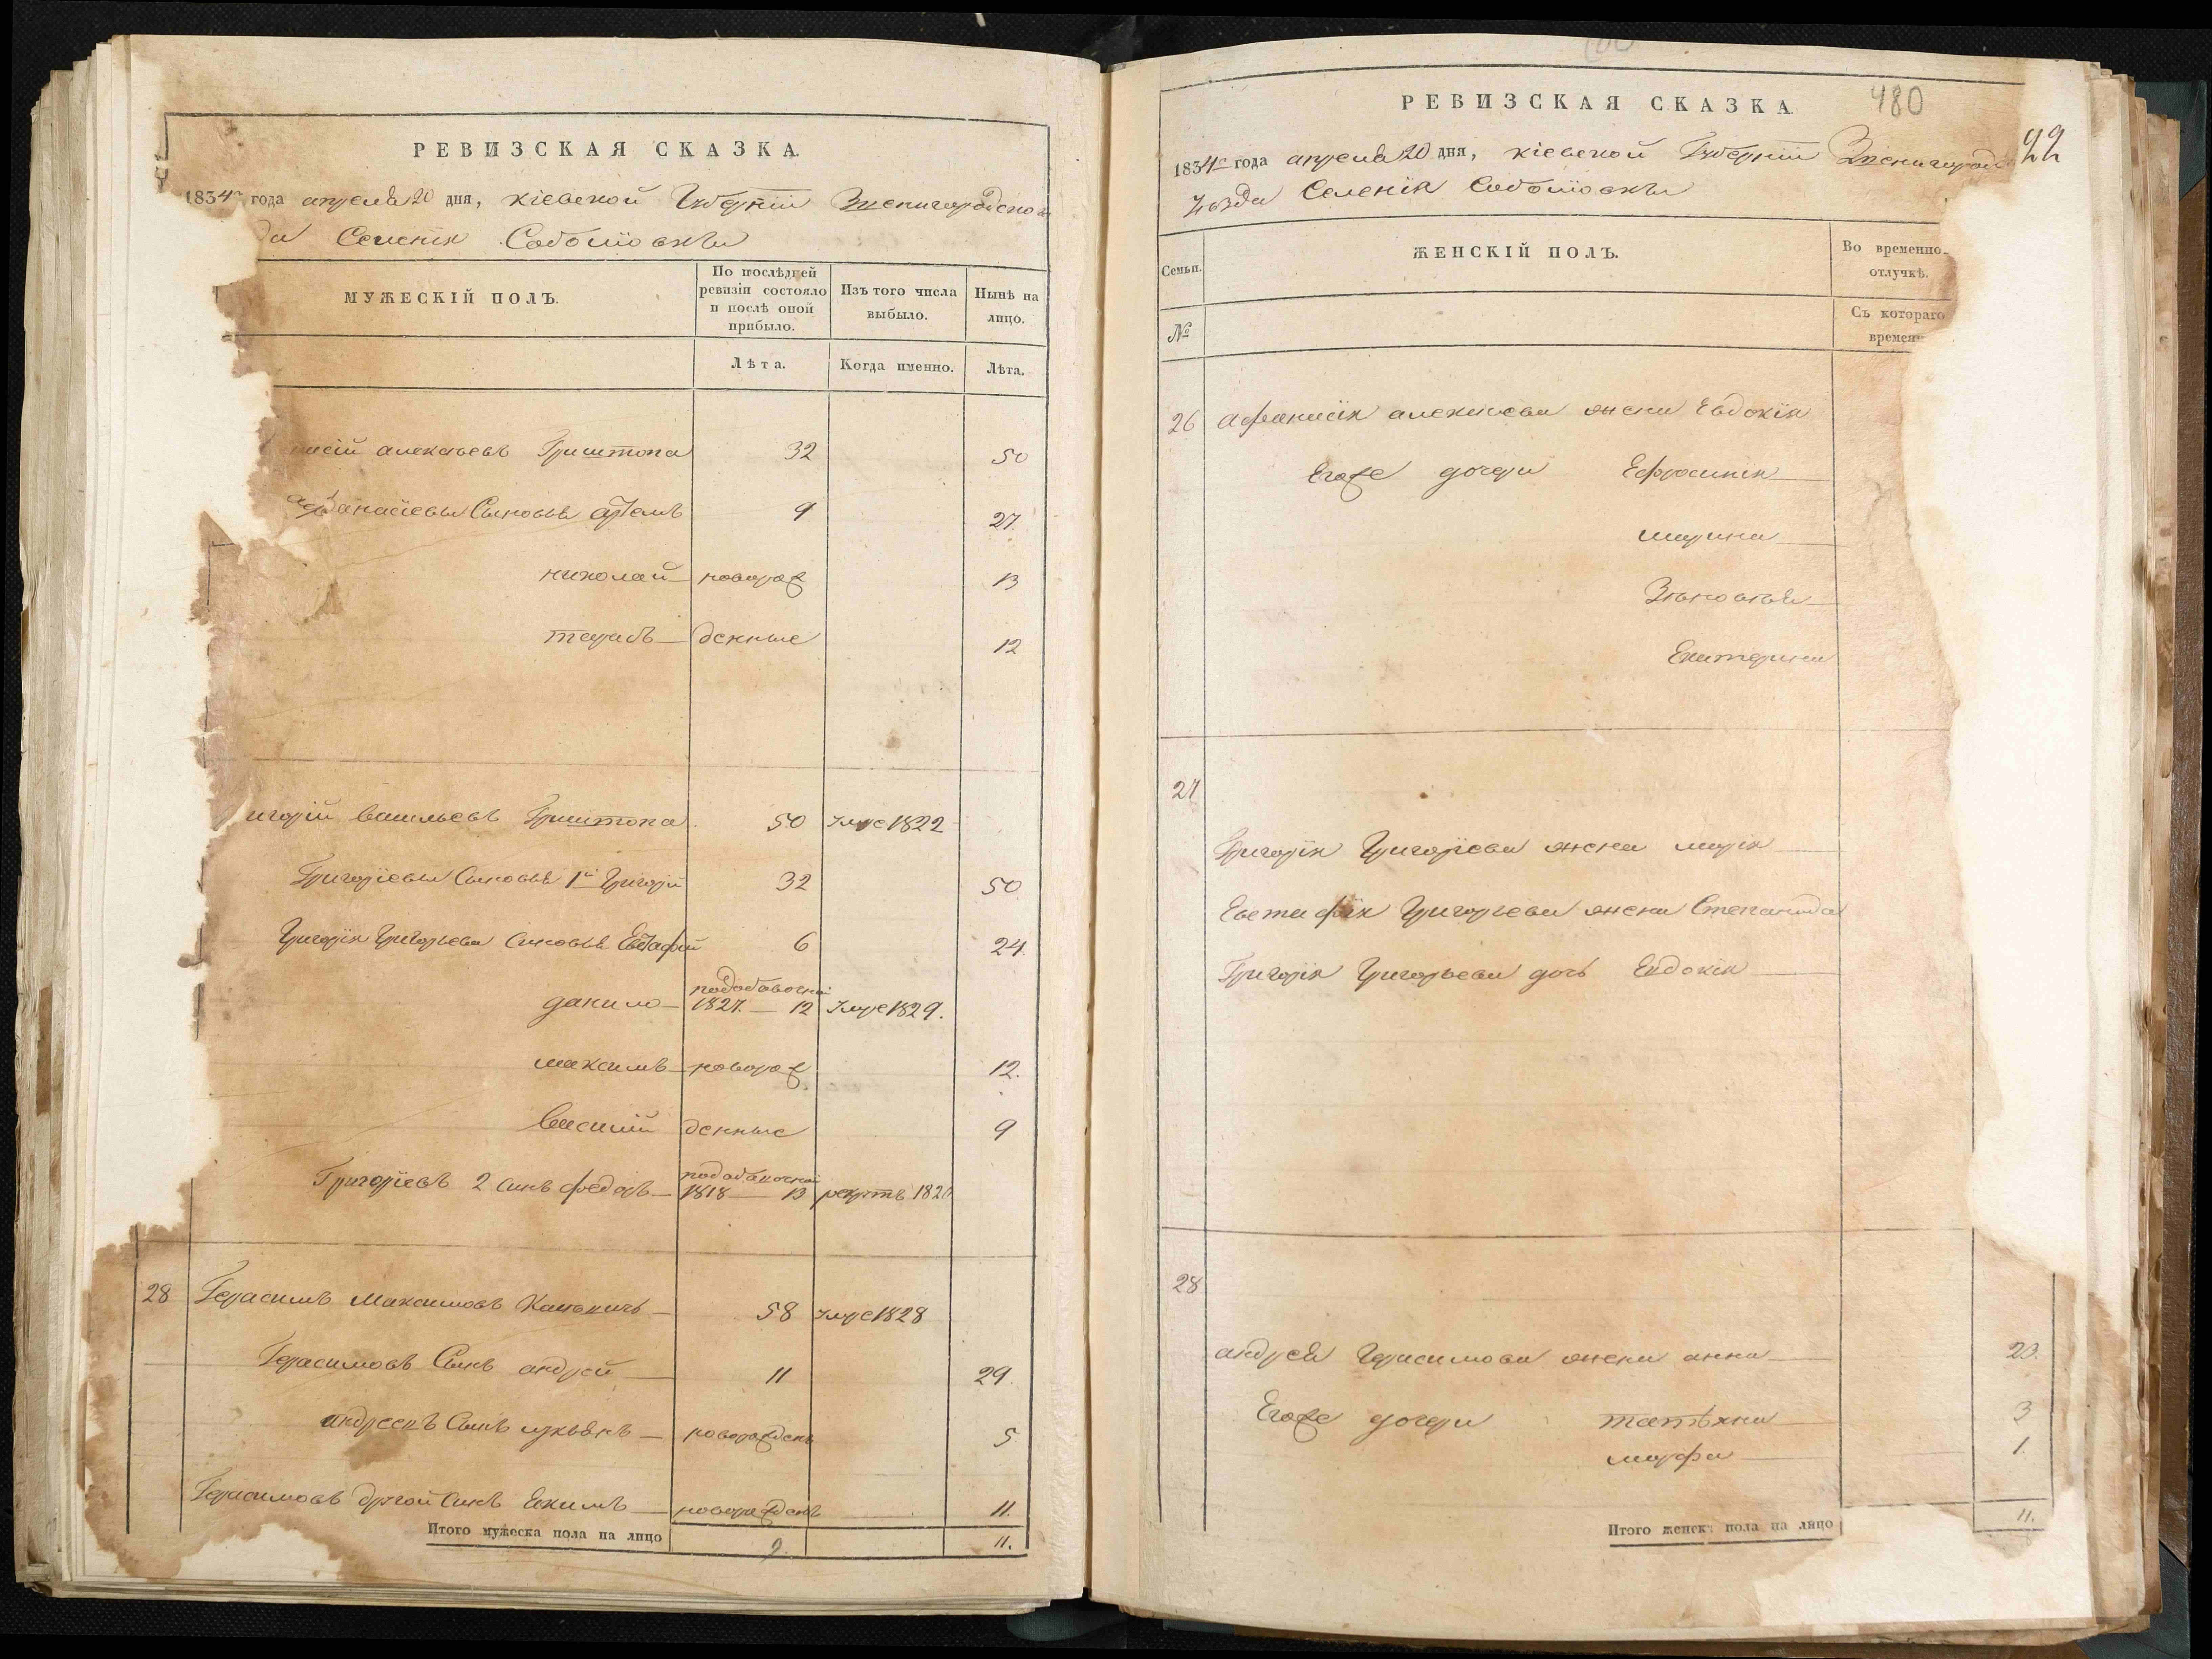 РЕВИЗСКАЯ СКАЗКА.
1834го года апреля 20 дня, Кіевской Губерніи Звенигородско
да Селенія Соболіовки
МУЖЕСКІЙ ПОЛЪ.
По послѣдней ревизіи состояло и послѣ оной прибыло.
Изъ того числа выбыло.
Нынѣ на лицо.
Лѣта.
Когда именно.
Лѣта.
насій алексѣевъ Гриштопа 32 50
афанасіевы Сыновья артемъ 9 27.
николай новорож 13
тарасъ денные 12
игорій васильевъ Гриштопа 50 умре 1822
Григоріевы Сыновья 1й Григорій 32 50
Григорія Григорьева Сыновья Евстафій 6 24.
подобавочной
данило 1827. — 12 умре 1829.
максимъ новорож 12.
василій денные 9
подобавочной
Григоріевъ 2 сынъ федоръ 1818 — 13 рекрутъ 182
28 Герасимъ Максимовъ 58 умре 1828
Герасимовъ Сынъ андрей 11 29.
андреевъ Сынъ лукьянъ новорожденъ 5
Герасимовъ другой сынъ Екимъ новорожденъ 11.
Итого мужеска пола на лицо 9. 11.
480
РЕВИЗСКАЯ СКАЗКА.
22
1834го года апреля 20 дня, Кіевской Губерніи Звенигородс
уезда Селенія Соболіовки
Семьи.
ЖЕНСКІЙ ПОЛЪ.
Во временно- отлучкѣ.
№
Съ котораго времени
26 афанасія алексѣева жена Евдокія
Егоже дочери Ефросинія
марина
Зѣновѣя
Екатерина
27
Григорія Григорієва жена марія
Евстафія Григорьева жена Степанида
Григорія Григорьева дочь Евдокія
28
андрея Герасимова жена анна 23.
Егоже дочери татьяна 3
марфа 1.
Итого женска пола на лицо 11.